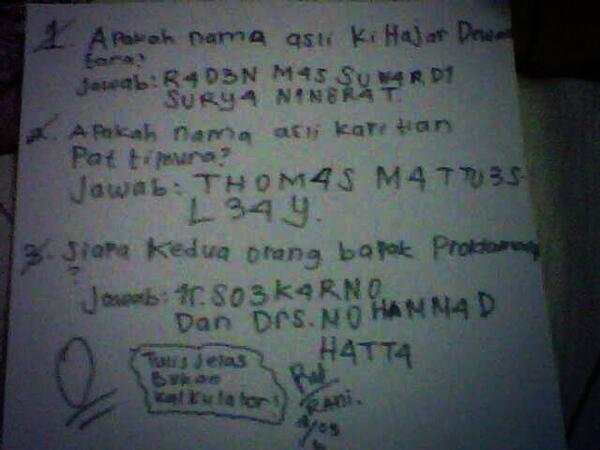 1. Apakah nama asli Ki Hajar Dewan
tara?
Jawab: R4D3N M4S SUW4RD1
SURY4 N1N6R4T.
2. Apakah nama asli karitian
Pattimura?
Jawab: THOM4S M4TTU3S
L34Y.
3. Siapa kedua orang bapak Proklamang
?
Jawab: 1r. SO3K4RNO
Dan Drs. MOHAMM4D
H4TT4
Tulis Jelas
Bukan
kalkulator!
RANI.